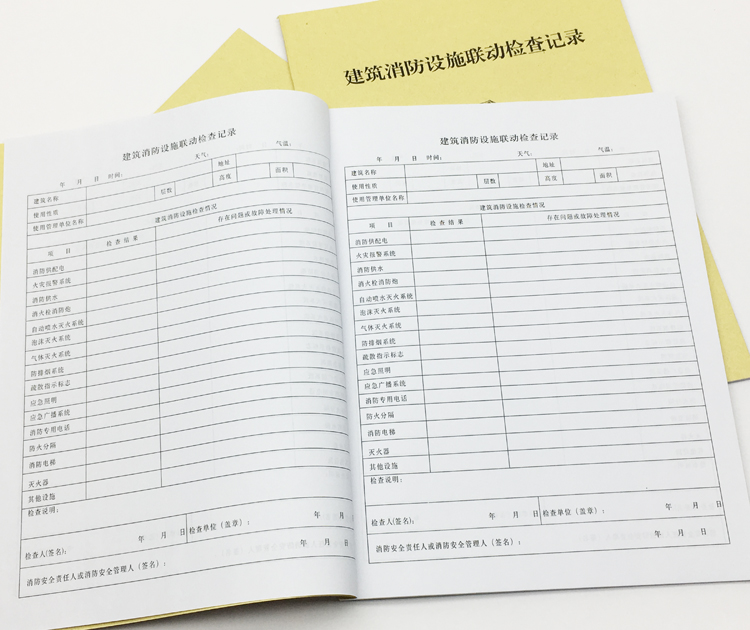 建筑消防设施联动检查记录
建筑消防设施联动检查记录
年 月 日 时间: 天气: 气温:
建筑名称 地址
使用性质 层数 高度 面积
使用管理单位名称
建筑消防设施检查情况
项 目 检 查 结 果 存在问题或故障处理情况
消防供配电
火灾报警系统
消防供水
消火栓消防炮
自动喷水灭火系统
泡沫灭火系统
气体灭火系统
防排烟系统
疏散指示标志
应急照明
应急广播系统
消防专用电话
防火分隔
消防电梯
灭火器
其他设施
检查说明:
检查人(签名): 年 月 日 检查单位(盖章): 年 月 日
消防安全责任人或消防安全管理人(签名): 年 月 日
建筑消防设施联动检查记录
年 月 日 时间: 天气: 气温:
建筑名称 地址
使用性质 层数 高度 面积
使用管理单位名称
建筑消防设施检查情况
项 目 检 查 结 果 存在问题或故障处理情况
消防供配电
火灾报警系统
消防供水
消火栓消防炮
自动喷水灭火系统
泡沫灭火系统
气体灭火系统
防排烟系统
疏散指示标志
应急照明
应急广播系统
消防专用电话
防火分隔
消防电梯
灭火器
其他设施
检查说明:
检查人(签名): 年 月 日 检查单位(盖章): 年 月 日
消防安全责任人或消防安全管理人(签名): 年 月 日